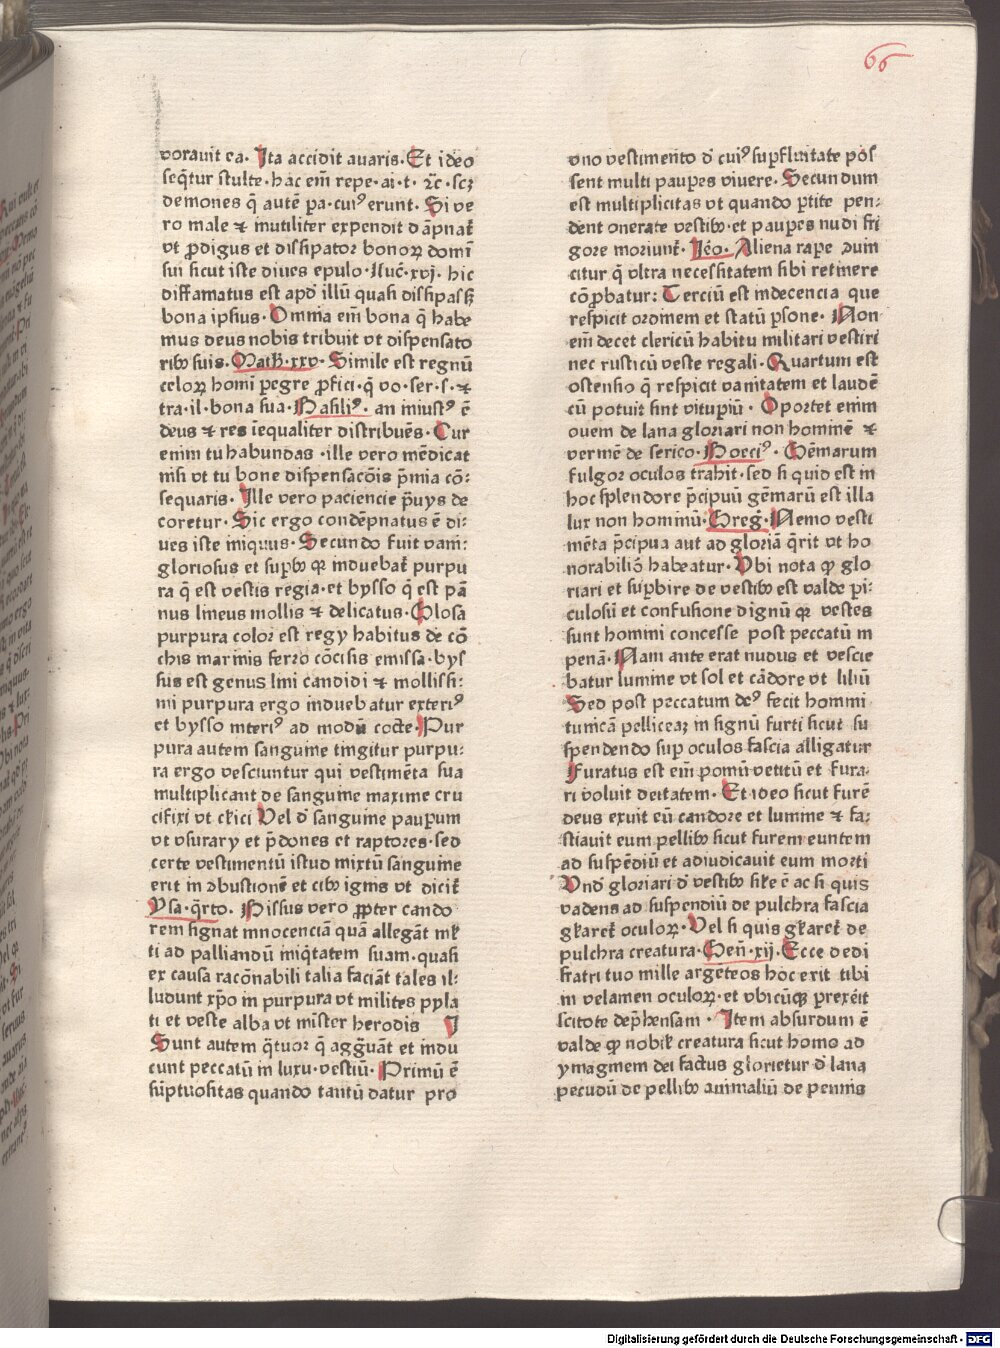 66
vorauit ea. Ita accidit auaris. Et ideo
seq̄tur stulte· hac em̄ repe·ai·t· ⁊c·scꝫ
demones q̄ autē pa·cuiꝰ erunt· Si ve
ro male ⁊ inutiliter expendit dāpnat᷑
vt ꝓdigus et dissipator bonoꝝ domī
sui sicut iste diues epulo·Luc̄·xvj· hic
diffamatus est apd̕ illū quasi dissipass̕
bona ipsius· Omnia em̄ bona q̄ habe
mus deus nobis tribuit vt dispensato
ribꝰ suis· Math̕·xxv· Simile est regnū
celoꝝ homī pegre ꝓfici·q̄ vo·ser·s·⁊
tra·il·bona sua·Basiliꝰ· an iniustꝰ ē
deus ⁊ res īequaliter distribuēs· Cur
enim tu habundas·ille vero mēdicat
nisi vt tu bone dispensac̄ōis p̄mia cō⸗
sequaris· Ille vero paciencie p̄uys de
coretur· Sic ergo condēpnatus ē di⸗
ues iste iniquus· Secundo fuit vani⸗
gloriosus et supbꝰ qꝛ induebat᷑ purpu
ra q̄ est vestis regia·et bysso q̄ est pā
nus lineus mollis ⁊ delicatus· Glosa
purpura color est regy habitus de cō
chis marinis ferro cōcisis emissa·bys
sus est genus lini candidi ⁊ mollissi⸗
mi purpura ergo induebatur exteriꝰ
et bysso interiꝰ ad modū cocte· Pur
pura autem sanguine tingitur purpu⸗
ra ergo vesciuntur qui vestimēta sua
multiplicant de sanguine maxime cru
cifixi vt cl̕ici Vel d̕ sanguine paupum
vt vsurary et p̄dones et raptores·sed
certe vestimentū istud mixtū sanguine
erit in ꝯbustionē et cibꝰ ignis vt dicit᷑
Ysa·q̄rto. Bissus vero ꝓpter cando
rem signat innocenciā quā allegāt ml̕
ti ad palliandū iniq̄tatem suam·quasi
ex causa rac̄onabili talia faciāt tales il⸗
ludunt xp̄o in purpura vt milites pyla
ti et veste alba vt mīster herodis I
Sunt autem q̄tuor q̄ agg̃uāt et indu
cunt peccatū in luxu·vestiū· Primū ē
sūptuositas quando tantū datur pro
vno vestimento d̕ cuiꝰ supfluitate pos
sent multi paupes viuere· Secundum
est multiplicitas vt quando ptite pen⸗
dent onerate vestibꝰ·et paupes nudi fri
gore moriunt᷑· Iēo· Aliena rape ꝯuin
citur q̄ vltra necessitatem sibi retinere
cōꝓbatur: Terciū est indecencia que
respicit ordinem et statū psone· Non
em̄ decet clericū habitu militari vestiri
nec rusticū veste regali· Quartum est
ostensio q̄ respicit vanitatem et laudē
cū potiut sint vitupiū· Oportet enim
ouem de lana gloriari non hominē ⁊
vermē de serico· Boeciꝰ· Gēmarum
fulgor oculos trahit·sed si quid est in
hoc splendore p̄cipuū gēmarū est illa
lux non hominū· Greḡ· Nemo vesti
mēta p̄cipua aut ad gloriā q̄rit vt ho
norabilio᷑ habeatur· Vbi nota ꝙ glo
riari et supbire de vestibꝰ est valde pi⸗
culosū et confusione dignū qꝛ vestes
sunt homini concesse post peccatū in
penā· Nam ante erat nudus et vescie
batur lumine vt sol et cādore vt liliū
Sed post peccatum deꝰ fecit homini
tunicā pelliceaꝫ in signū furti sicut su
spendendo sup oculos fascia alligatur
Furatus est em̄ pomū vetitū et fura⸗
ri voluit deitatem· Et ideo sicut furē
deus exuit eū candore et lumine ⁊ fa⸗
stiauit eum pellibꝰ sicut furem euntem
ad suspēdiū et adiudicauit eum morti
Vnd̕ gloriari d̕ vestibꝰ sil̕e ē ac si quis
vadens ad suspendiū de pulchra fascia
gl̕aret᷑ oculoꝝ· Vel si quis gl̕aret᷑ de
pulchra creatura· Gen̄·xij· Ecce dedi
fratri tuo mille argēteos hoc erit tibi
in velamen oculoꝝ·et vbicūqꝫ prexeīt
scitote dep̄hensam· Item absurdum ē
valde ꝙ nobil̕ creatura sicut homo ad
ymaginem dei factus glorietur d̕ lana
pecudū de pellibꝰ animaliū de pennis
Digitalisierung gefördert durch die Deutsche Forschungsgemeinschaft · DFG